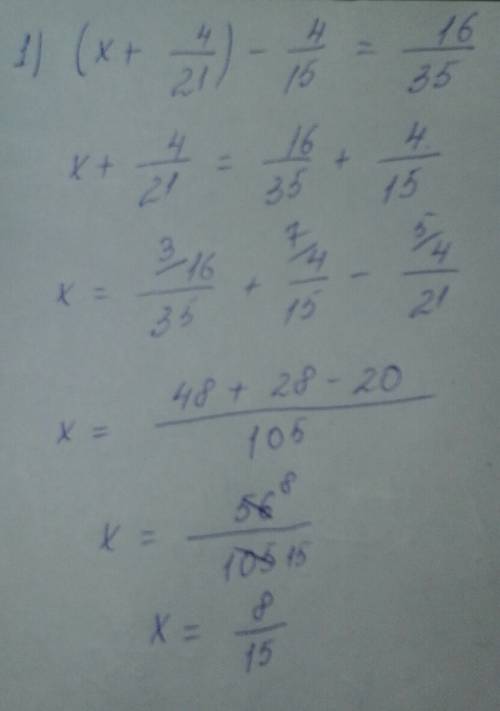 1) (x + 4/21) - 4/15 = 16/35
x + 4/21 = 16/35 + 4/15
x = 3/16/35 + 7/4/15 - 5/4/21
x = 48 + 28 - 20/105
x = 56 8/105 15
x = 8/15